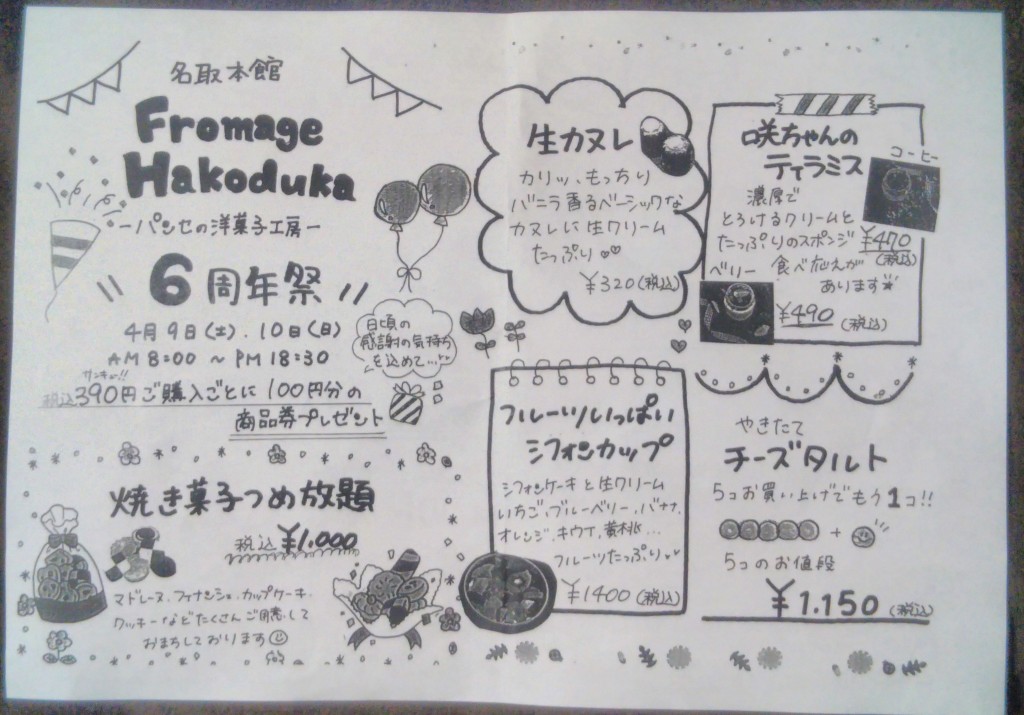 名取本館
Fromage
Hakoduka
ーパンセの洋菓子工房ー
6周年祭
4月9日(土).10日(日)
AM 8:00 ～ PM 18:30
サンキュー!!
税込390円ご購入ごとに100円分の
商品券プレゼント
日頃の
感謝の気持ち
を込めて...
焼き菓子つめ放題
税込 ¥1,000
マドレーヌ.フィナンシェ.カップケーキ.
クッキーなどたくさんご用意して
おまちしております
生カヌレ
カリッ、もっちり
バニラ香るベーシックな
カヌレに生クリーム
たっぷり
¥320(税込)
咲ちゃんの
ティラミス
コーヒー
濃厚で
とろけるクリームと
たっぷりのスポンジ
¥470
(税込)
食べ応えが
あります
ベリー
¥490(税込)
フルーツいっぱい
シフォンカップ
シフォンケーキと生クリーム
いちご.ブルーベリー.バナナ.
オレンジ.キウイ.黄桃...
フルーツたっぷり
¥1400(税込)
やきたて
チーズタルト
5コお買い上げでもう1コ!!
+
5コのお値段
¥1.150(税込)